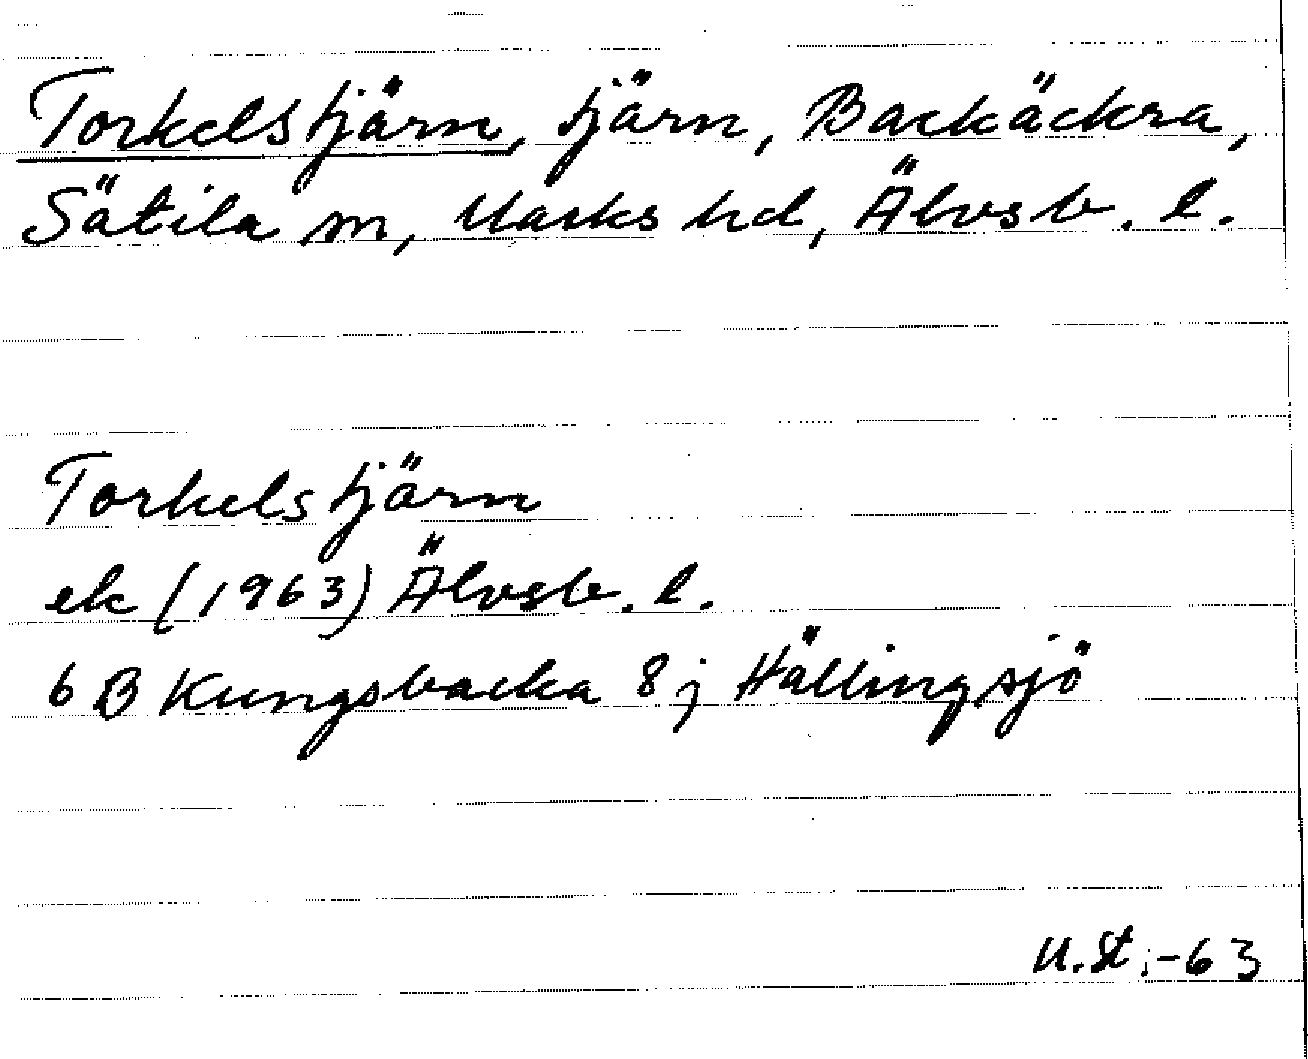 Torkelstjärn, tjärn, Backäckra,
Sätila sn, Marks hd, Älvsb. l.
Torkelstjärn
ek (1963) Älvsb. l.
6 B Kungsbacka 8 j Hällingsjö
U.St. -63